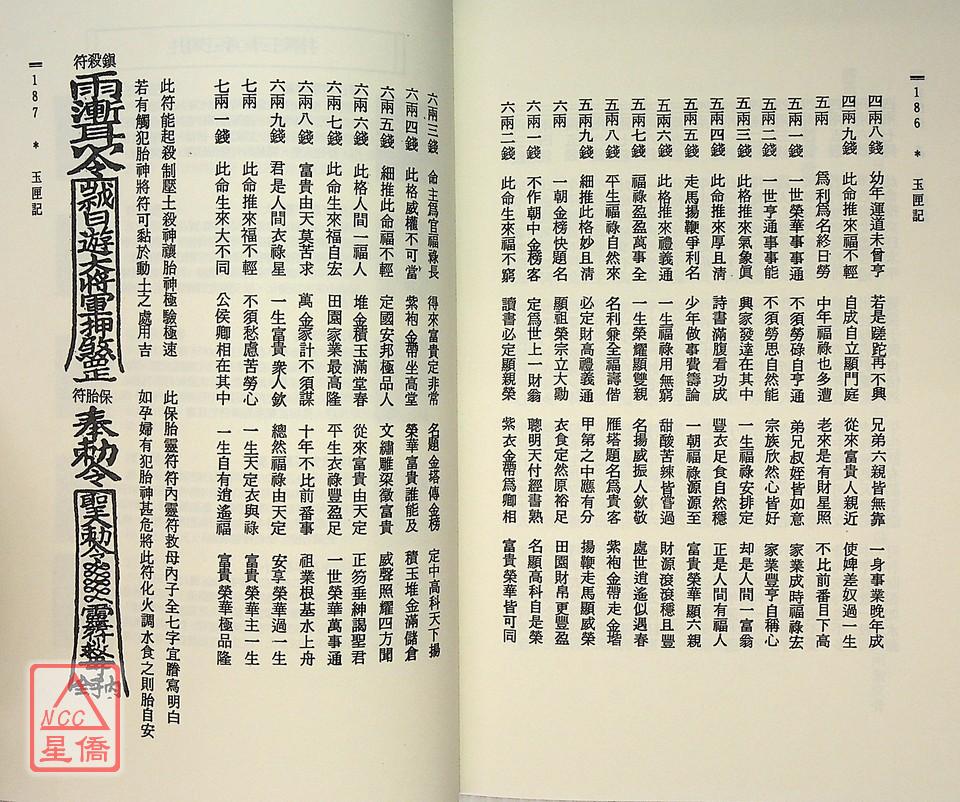 186 * 玉匣記
四兩八錢 幼年運道未曾亨 若是蹉跎再不興 兄弟六親皆無靠 一身事業晚年成
四兩九錢 此命推來福不輕 自成自立顯門庭 從來富貴人親近 使婢差奴過一生
五兩 為利為名終日勞 中年福祿也多遭 老來是有財星照 不比前番目下高
五兩一錢 一世榮華事事通 不須勞碌自亨通 弟兄叔姪皆如意 家業成時福祿宏
五兩二錢 一世亨通事事能 不須勞思自然能 宗族欣然心皆好 家業豐亨自稱心
五兩三錢 此格推來氣象真 興家發達在其中 一生福祿安排定 却是人間一富翁
五兩四錢 此命推來厚且清 詩書滿腹看功成 豐衣足食自然穩 正是人間有福人
五兩五錢 走馬揚鞭爭利名 少年做事費籌論 一朝福祿源源至 富貴榮華顯六親
五兩六錢 此格推來禮義通 一生福祿用無窮 甜酸苦辣皆嘗過 財源滾滾穩且豐
五兩七錢 福祿盈盈萬事全 一生榮耀顯雙親 名揚威振人欽敬 處世逍遙似遇春
五兩八錢 平生福祿自然來 名利兼全福壽偕 雁塔題名為貴客 紫袍金帶走金堦
五兩九錢 細推此格妙且清 必定財高禮義通 甲第之中應有分 揚鞭走馬顯威榮
六兩 一朝金榜快題名 顯祖榮宗立大勳 衣食定然原裕足 田園財帛更豐盈
六兩一錢 不作朝中金榜客 定為世上一財翁 聰明天付經書熟 名顯高科自是榮
六兩二錢 此命生來福不窮 讀書必定顯親榮 紫衣金帶為卿相 富貴榮華皆可同
六兩三錢 命主為官福祿長 得來富貴定非常 名題金塔傳金榜 定中高科天下揚
六兩四錢 此格威權不可當 紫袍金帶坐高堂 榮華富貴誰能及 積玉堆金滿儲倉
六兩五錢 細推此命福不輕 定國安邦極品人 文繡雕梁徵富貴 威聲照耀四方聞
六兩六錢 此格人間一福人 堆金積玉滿堂春 從來富貴由天定 正笏垂紳謁聖君
六兩七錢 此命生來福自宏 田園家業最高隆 平生衣祿豐盈足 一世榮華萬事通
六兩八錢 富貴由天莫苦求 萬金家計不須謀 十年不比前番事 祖業根基水上舟
六兩九錢 君是人間衣祿星 一生富貴衆人欽 總然福祿由天定 安享榮華過一生
七兩 此命推來福不輕 不須愁慮苦勞心 一生天定衣與祿 富貴榮華主一生
七兩一錢 此命生來大不同 公侯卿相在其中 一生自有逍遙福 富貴榮華極品隆
此符能起殺制壓土殺神禳胎神極驗極速
若有觸犯胎神將符可黏於動土之處用吉
鎮殺符
日遊大將軍押煞
此保胎靈符符內靈符救母內子全七字宜謄寫明白
如孕婦有犯胎神甚危將此符化火調水食之則胎自安
保胎符
奉勅令
聖天勅令靈符救母內子全
187 * 玉匣記
NCC
星僑